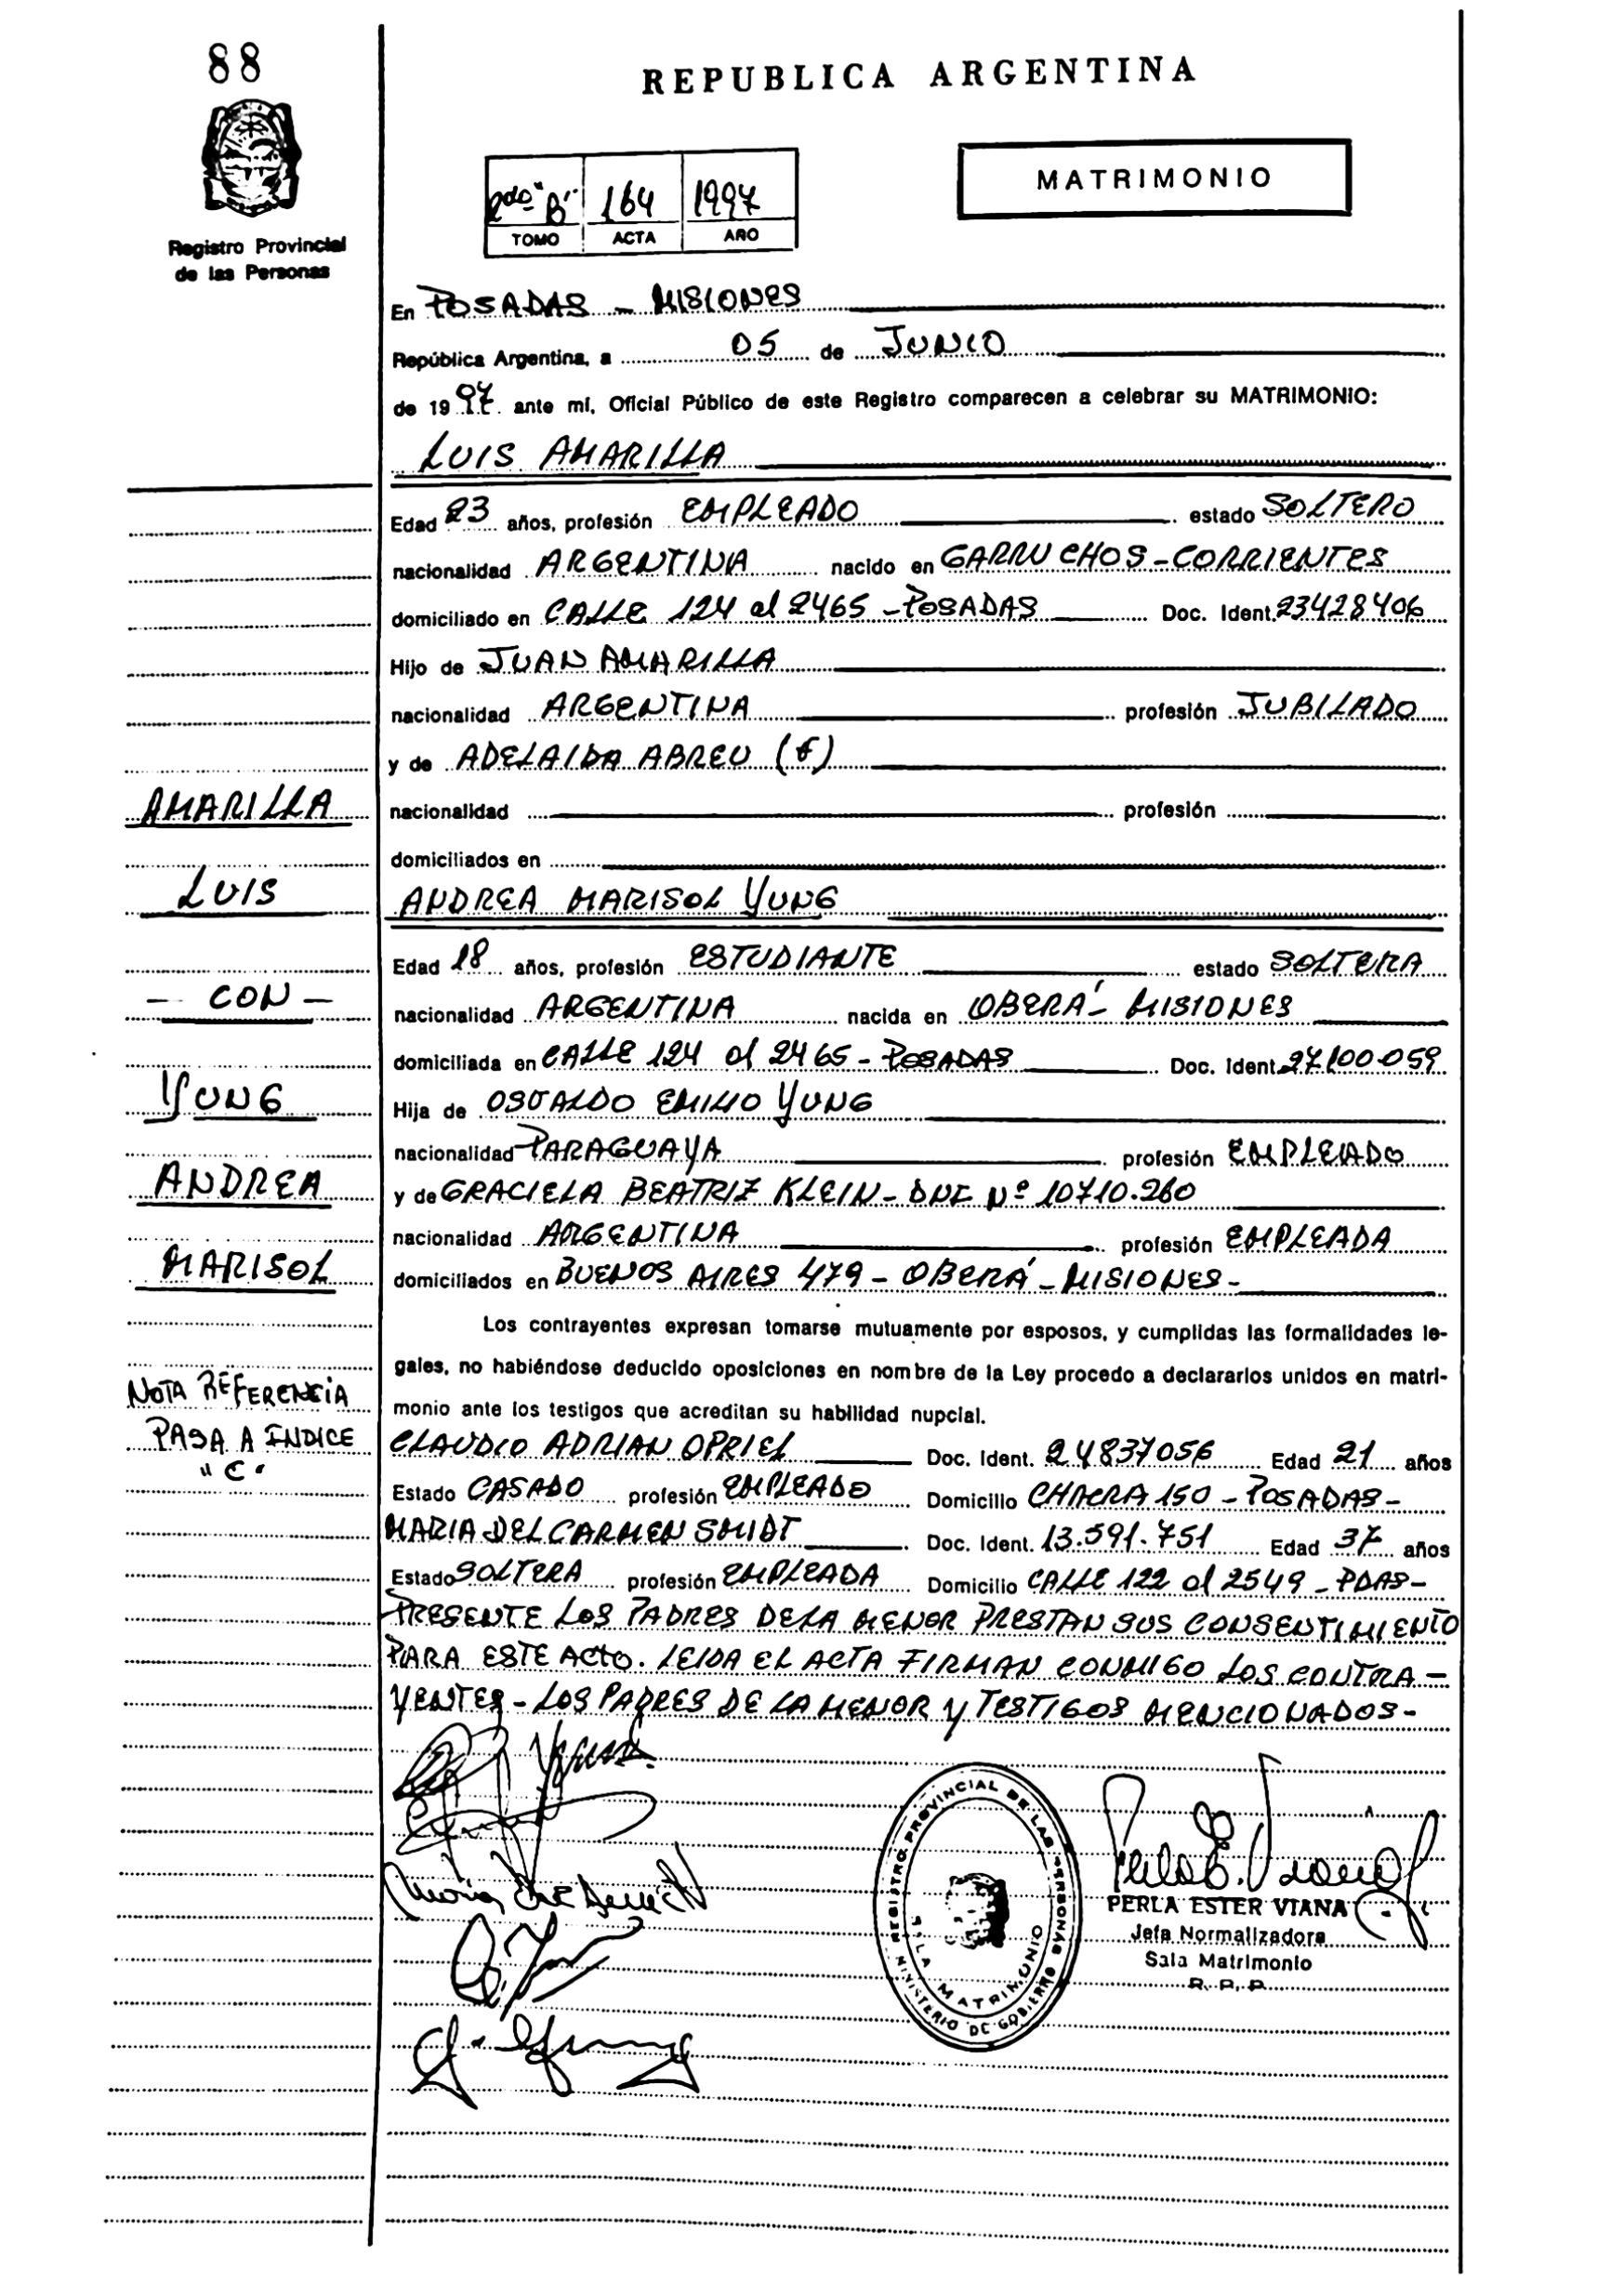 88
REPUBLICA ARGENTINA
Registro Provincial
de las Personas
2do "B" 164 1997
TOMO ACTA AÑO
MATRIMONIO
En POSADAS - MISIONES
República Argentina, a 05 de JUNIO
de 1997 ante mí, Oficial Público de este Registro comparecen a celebrar su MATRIMONIO:
LUIS AMARILLA
Edad 23 años, profesión EMPLEADO estado SOLTERO
nacionalidad ARGENTINA nacido en GARRUCHOS-CORRIENTES
domiciliado en CALLE 124 al 2465 - POSADAS Doc. Ident. 23428406
Hijo de JUAN AMARILLA
nacionalidad ARGENTINA profesión JUBILADO
y de ADELAIDA ABREU (f)
nacionalidad profesión
domiciliados en
ANDREA MARISOL YUNG
Edad 18 años, profesión ESTUDIANTE estado SOLTERA
nacionalidad ARGENTINA nacida en OBERÁ - MISIONES
domiciliada en CALLE 124 al 2465 - POSADAS Doc. Ident. 27100059
Hija de OSVALDO EMILIO YUNG
nacionalidad PARAGUAYA profesión EMPLEADO
y de GRACIELA BEATRIZ KLEIN - DNI Nº 10710.260
nacionalidad ARGENTINA profesión EMPLEADA
domiciliados en BUENOS AIRES 479 - OBERÁ - MISIONES -
Los contrayentes expresan tomarse mutuamente por esposos, y cumplidas las formalidades le-
gales, no habiéndose deducido oposiciones en nombre de la Ley procedo a declararlos unidos en matri-
monio ante los testigos que acreditan su habilidad nupcial.
CLAUDIO ADRIAN OPRIEL Doc. Ident. 24837056 Edad 21 años
Estado CASADO profesión EMPLEADO Domicilio CHACRA 150 - POSADAS -
MARIA DEL CARMEN SMIDT Doc. Ident. 13.591.751 Edad 37 años
Estado SOLTERA profesión EMPLEADA Domicilio CALLE 122 al 2549 - PDAS -
PRESENTE LOS PADRES DE LA MENOR PRESTAN SUS CONSENTIMIENTO
PARA ESTE ACTO. LEIDA EL ACTA FIRMAN CONMIGO LOS CONTRA-
YENTES - LOS PADRES DE LA MENOR Y TESTIGOS MENCIONADOS -
AMARILLA
LUIS
- CON -
YUNG
ANDREA
MARISOL
NOTA REFERENCIA
PASA A INDICE
"C"
REGISTRO PROVINCIAL DE LAS PERSONAS
MINISTERIO DE GOBIERNO
SALA MATRIMONIO
PERLA ESTER VIANA
Jefa Normalizadora
Sala Matrimonio
R. P. P.